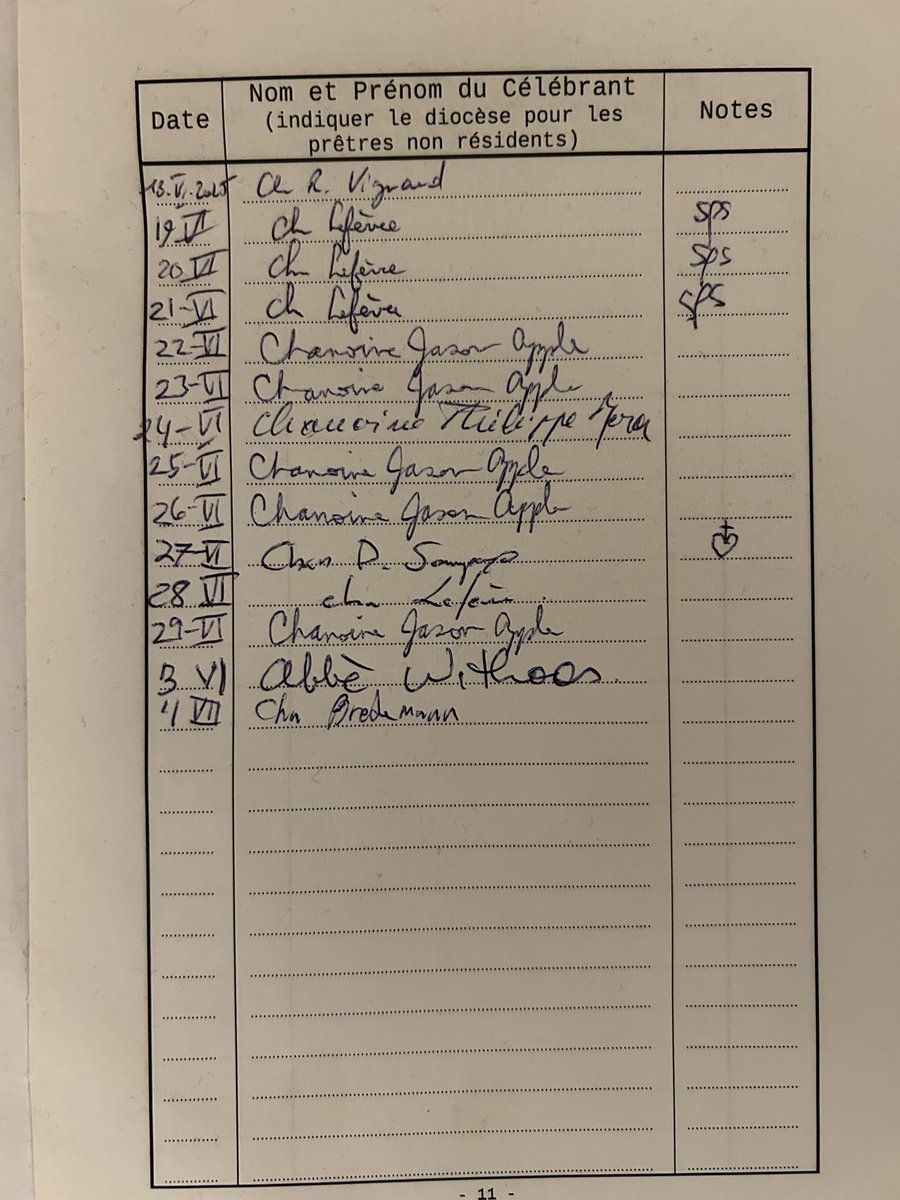 Date Nom et Prénom du Célébrant Notes
(indiquer le diocèse pour les
prêtres non résidents)
18.VI.2025 Ch R. Vignaud
19 VI Ch Lefèvre sps
20 VI Ch Lefèvre sps
21-VI Ch Lefèvre sps
22-VI Chanoine Jason Apple
23-VI Chanoine Jason Apple
24-VI Chanoine Philippe
25-VI Chanoine Jason Apple
26-VI Chanoine Jason Apple
27-VI Chan D.
28 VI chn Lefèvre
29-VI Chanoine Jason Apple
3 VI Abbè Withoos
4 VII Chn Bredemann
- 11 -